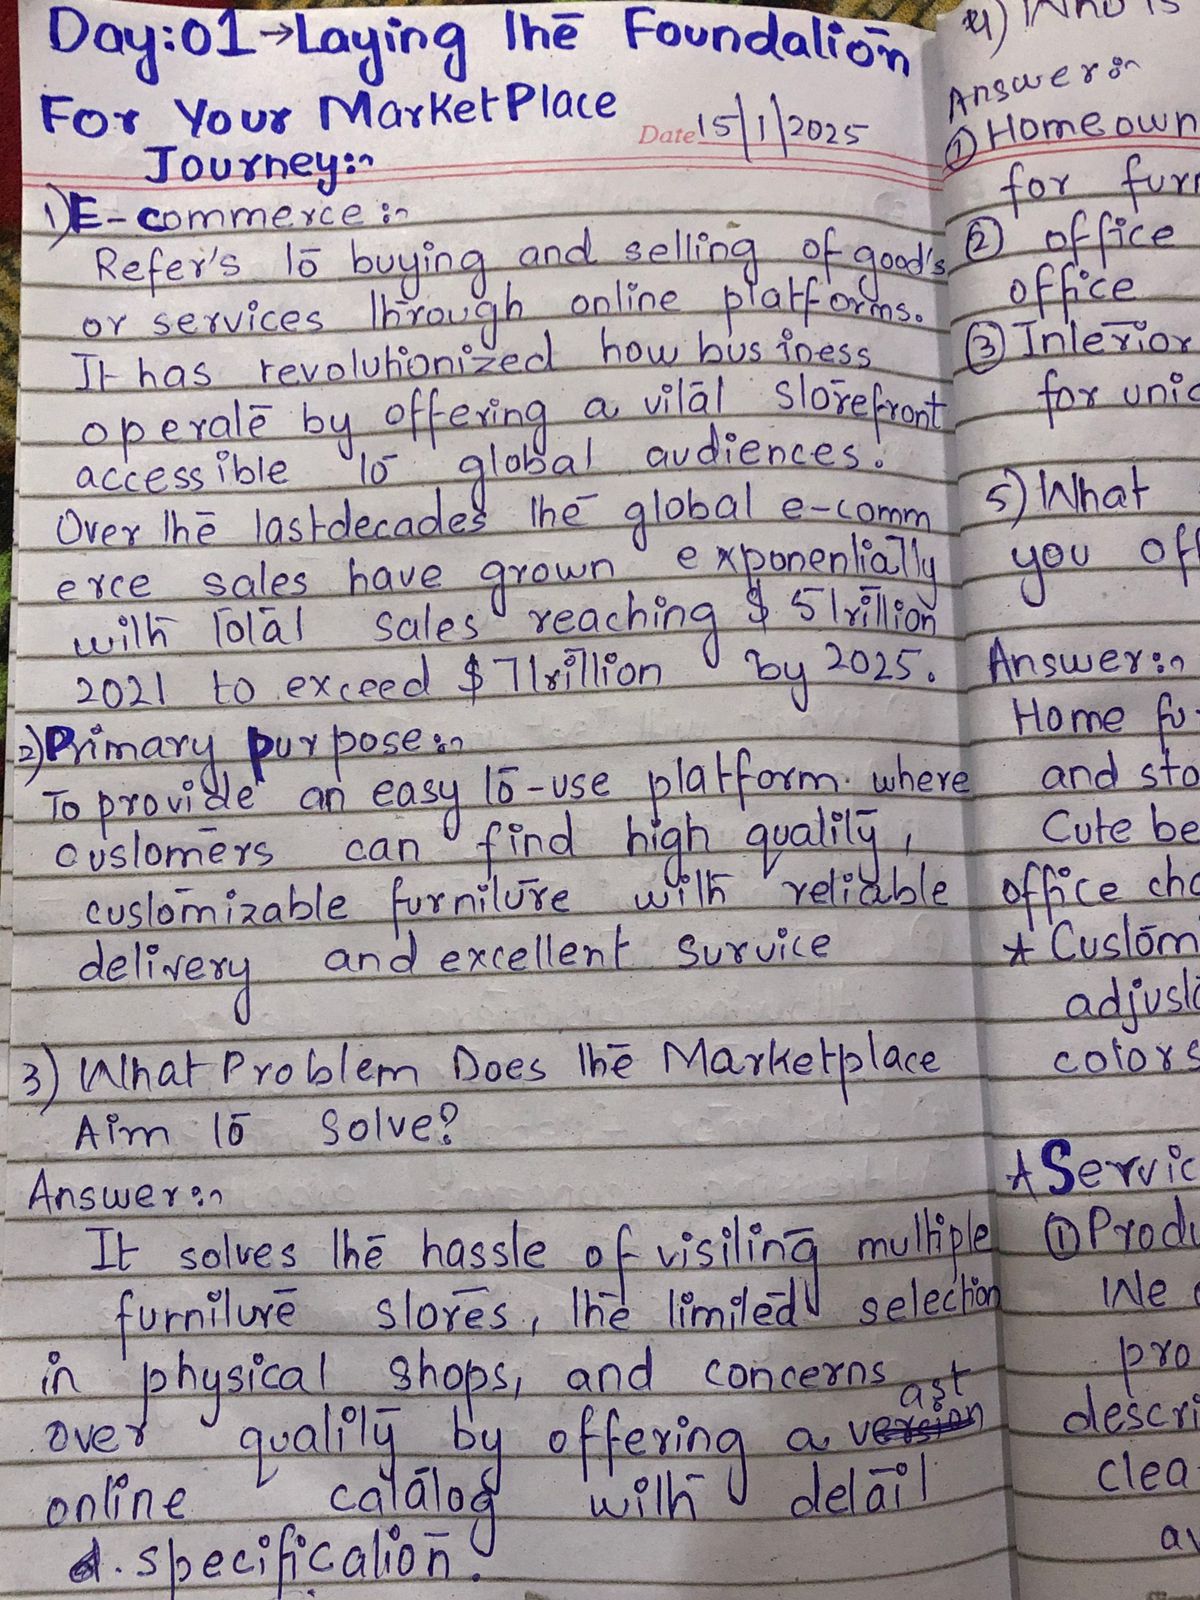 Day:01→Laying the Foundation
For Your MarketPlace
Date 15/1/2025
Journey:~
1) E-commerce:~
Refer's to buying and selling of good's
or services through online platforms.
It has revolutionized how business
operate by offering a vital storefront
accessible to global audiences.
Over the last decades the global e-comm
erce sales have grown exponentially
with total sales reaching $ 5 trillion
2021 to exceed $ 7 trillion by 2025.
2) Primary purpose:~
To provide an easy to-use platform. where
customers can find high quality,
customizable furniture with reliable
delivery and excellent survice
3) What Problem Does the Marketplace
Aim to solve?
Answer:~
It solves the hassle of visiting multiple
furniture stores, the limited selection
in physical shops, and concerns
over quality by offering a vast
online catalog with detail
d. specification.
4) Who is
Answer:~
① Home own
for furn
② office
office
③ Interior
for uniq
5) What
you off
Answer:~
Home fu
and sto
Cute be
office cha
* Custom
adjust
colors
* Servic
① Produ
We
pro
descri
clea
av